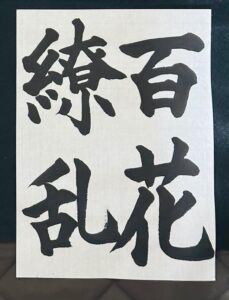 百花
繚乱